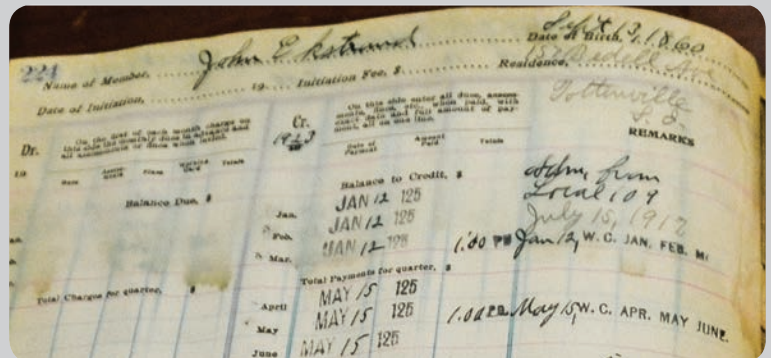 224 Name of Member, John Ekstrand Date of Birth, Sept 13, 1860
Date of Initiation, 19 Initiation Fee, $ Residence, 157 Bedell Ave
Tottenville
S. I.
Dr. On the first of each month charge on this side the monthly dues in advance and all assessments or fines when levied.
Cr. 1923 On this side enter all dues, assessments, fines, etc., when paid, with exact date and full amount of payment, all on one line.
REMARKS
19 Dues Fines Working Card Totals Date of Payment Amount Paid Totals
Balance Due, $ Balance to Credit, $
Adm. from
Jan. JAN 12 125 Local 109
Feb. JAN 12 125 July 15, 1912
Mar. JAN 12 125 1.00 Jan 12, W. C. JAN. FEB.
Total Charges for quarter, $ Total Payments for quarter, $
April MAY 15 125
May MAY 15 125 1.00 May 15, W. C. APR. MAY JUNE.
June MAY 15 125